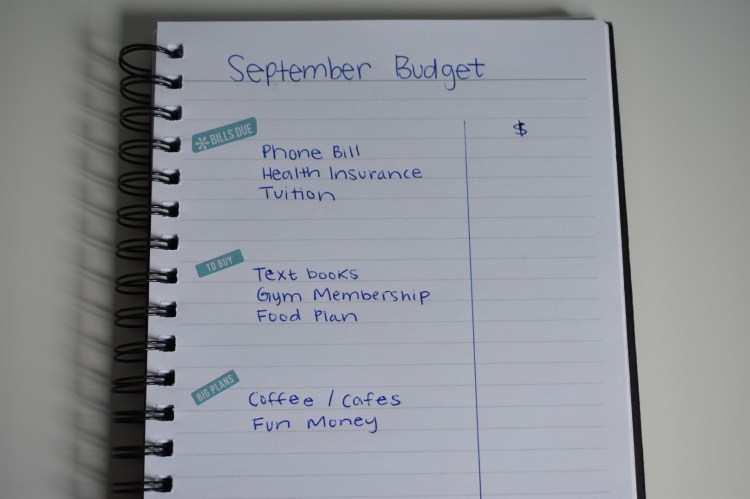 September Budget
$
BILLS DUE
Phone Bill
Health Insurance
Tuition
TO BUY
Text books
Gym Membership
Food Plan
BIG PLANS
Coffee / Cafes
Fun Money